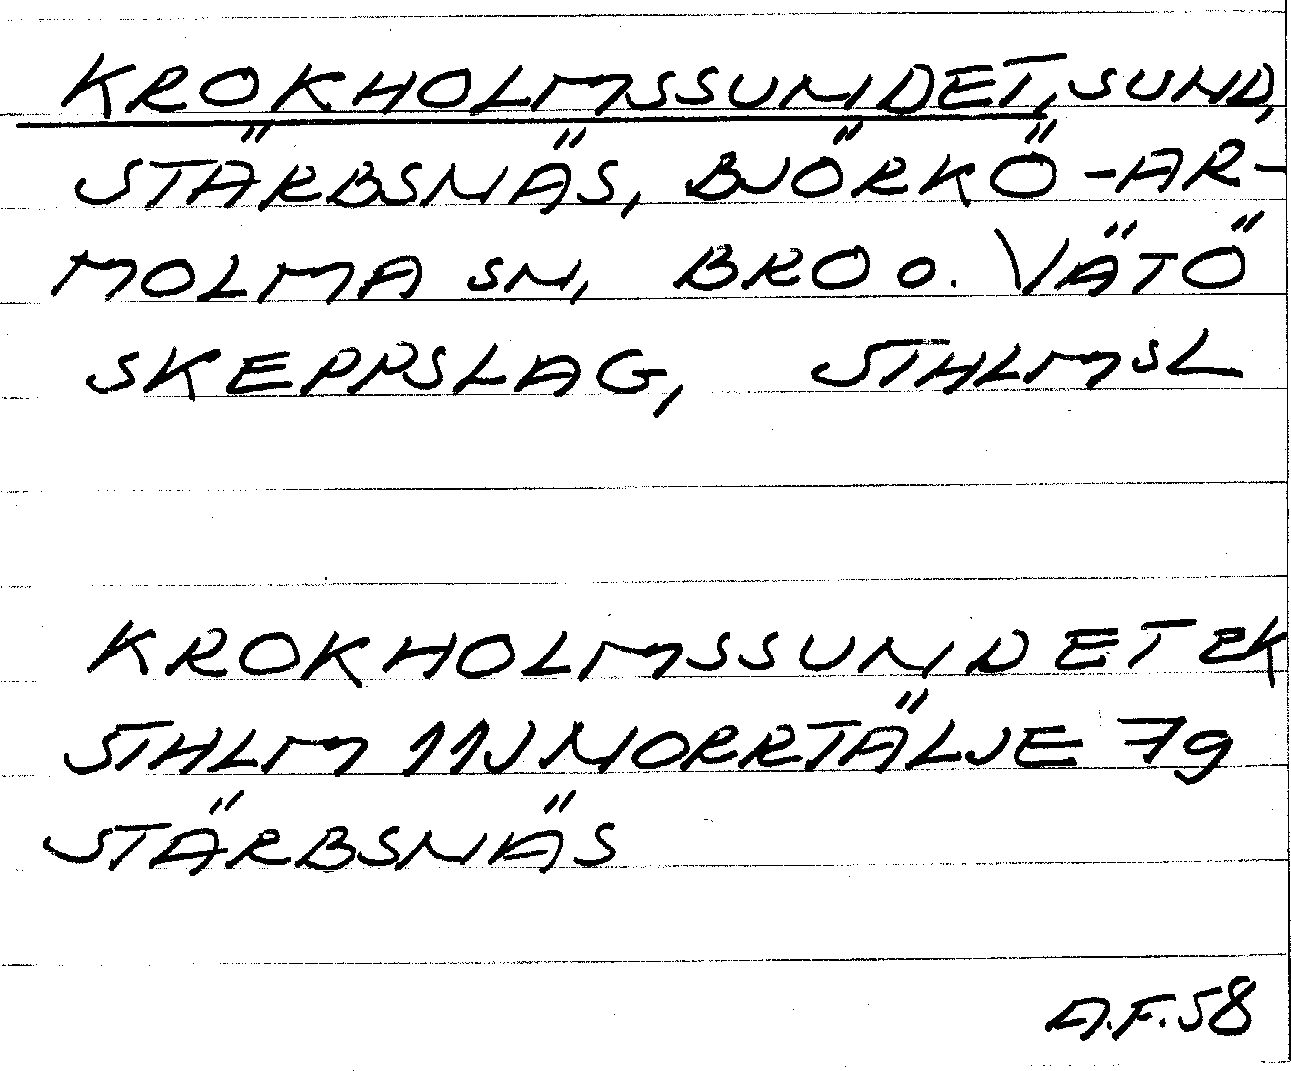 KROKHOLMSSUNDET, SUND,
STÄRBSNÄS, BJÖRKÖ-AR-
MOLMA SN, BRO O. VÄTÖ
SKEPPSLAG, STHLMSL
KROKHOLMSSUNDET EK
STHLM 11J NORRTÄLJE 7g
STÄRBSNÄS
A.F.58